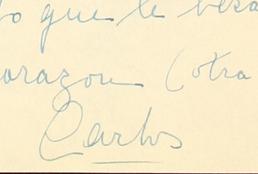 que le besa
corazon (otra
Carlos